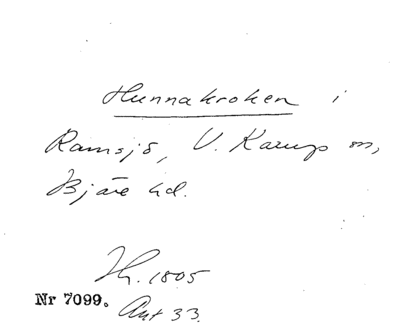 Hunnakroken i
Ramsjö, V. Karup sn,
Bjäre hd.
Th. 1805
Nr 7099.
Ant 33